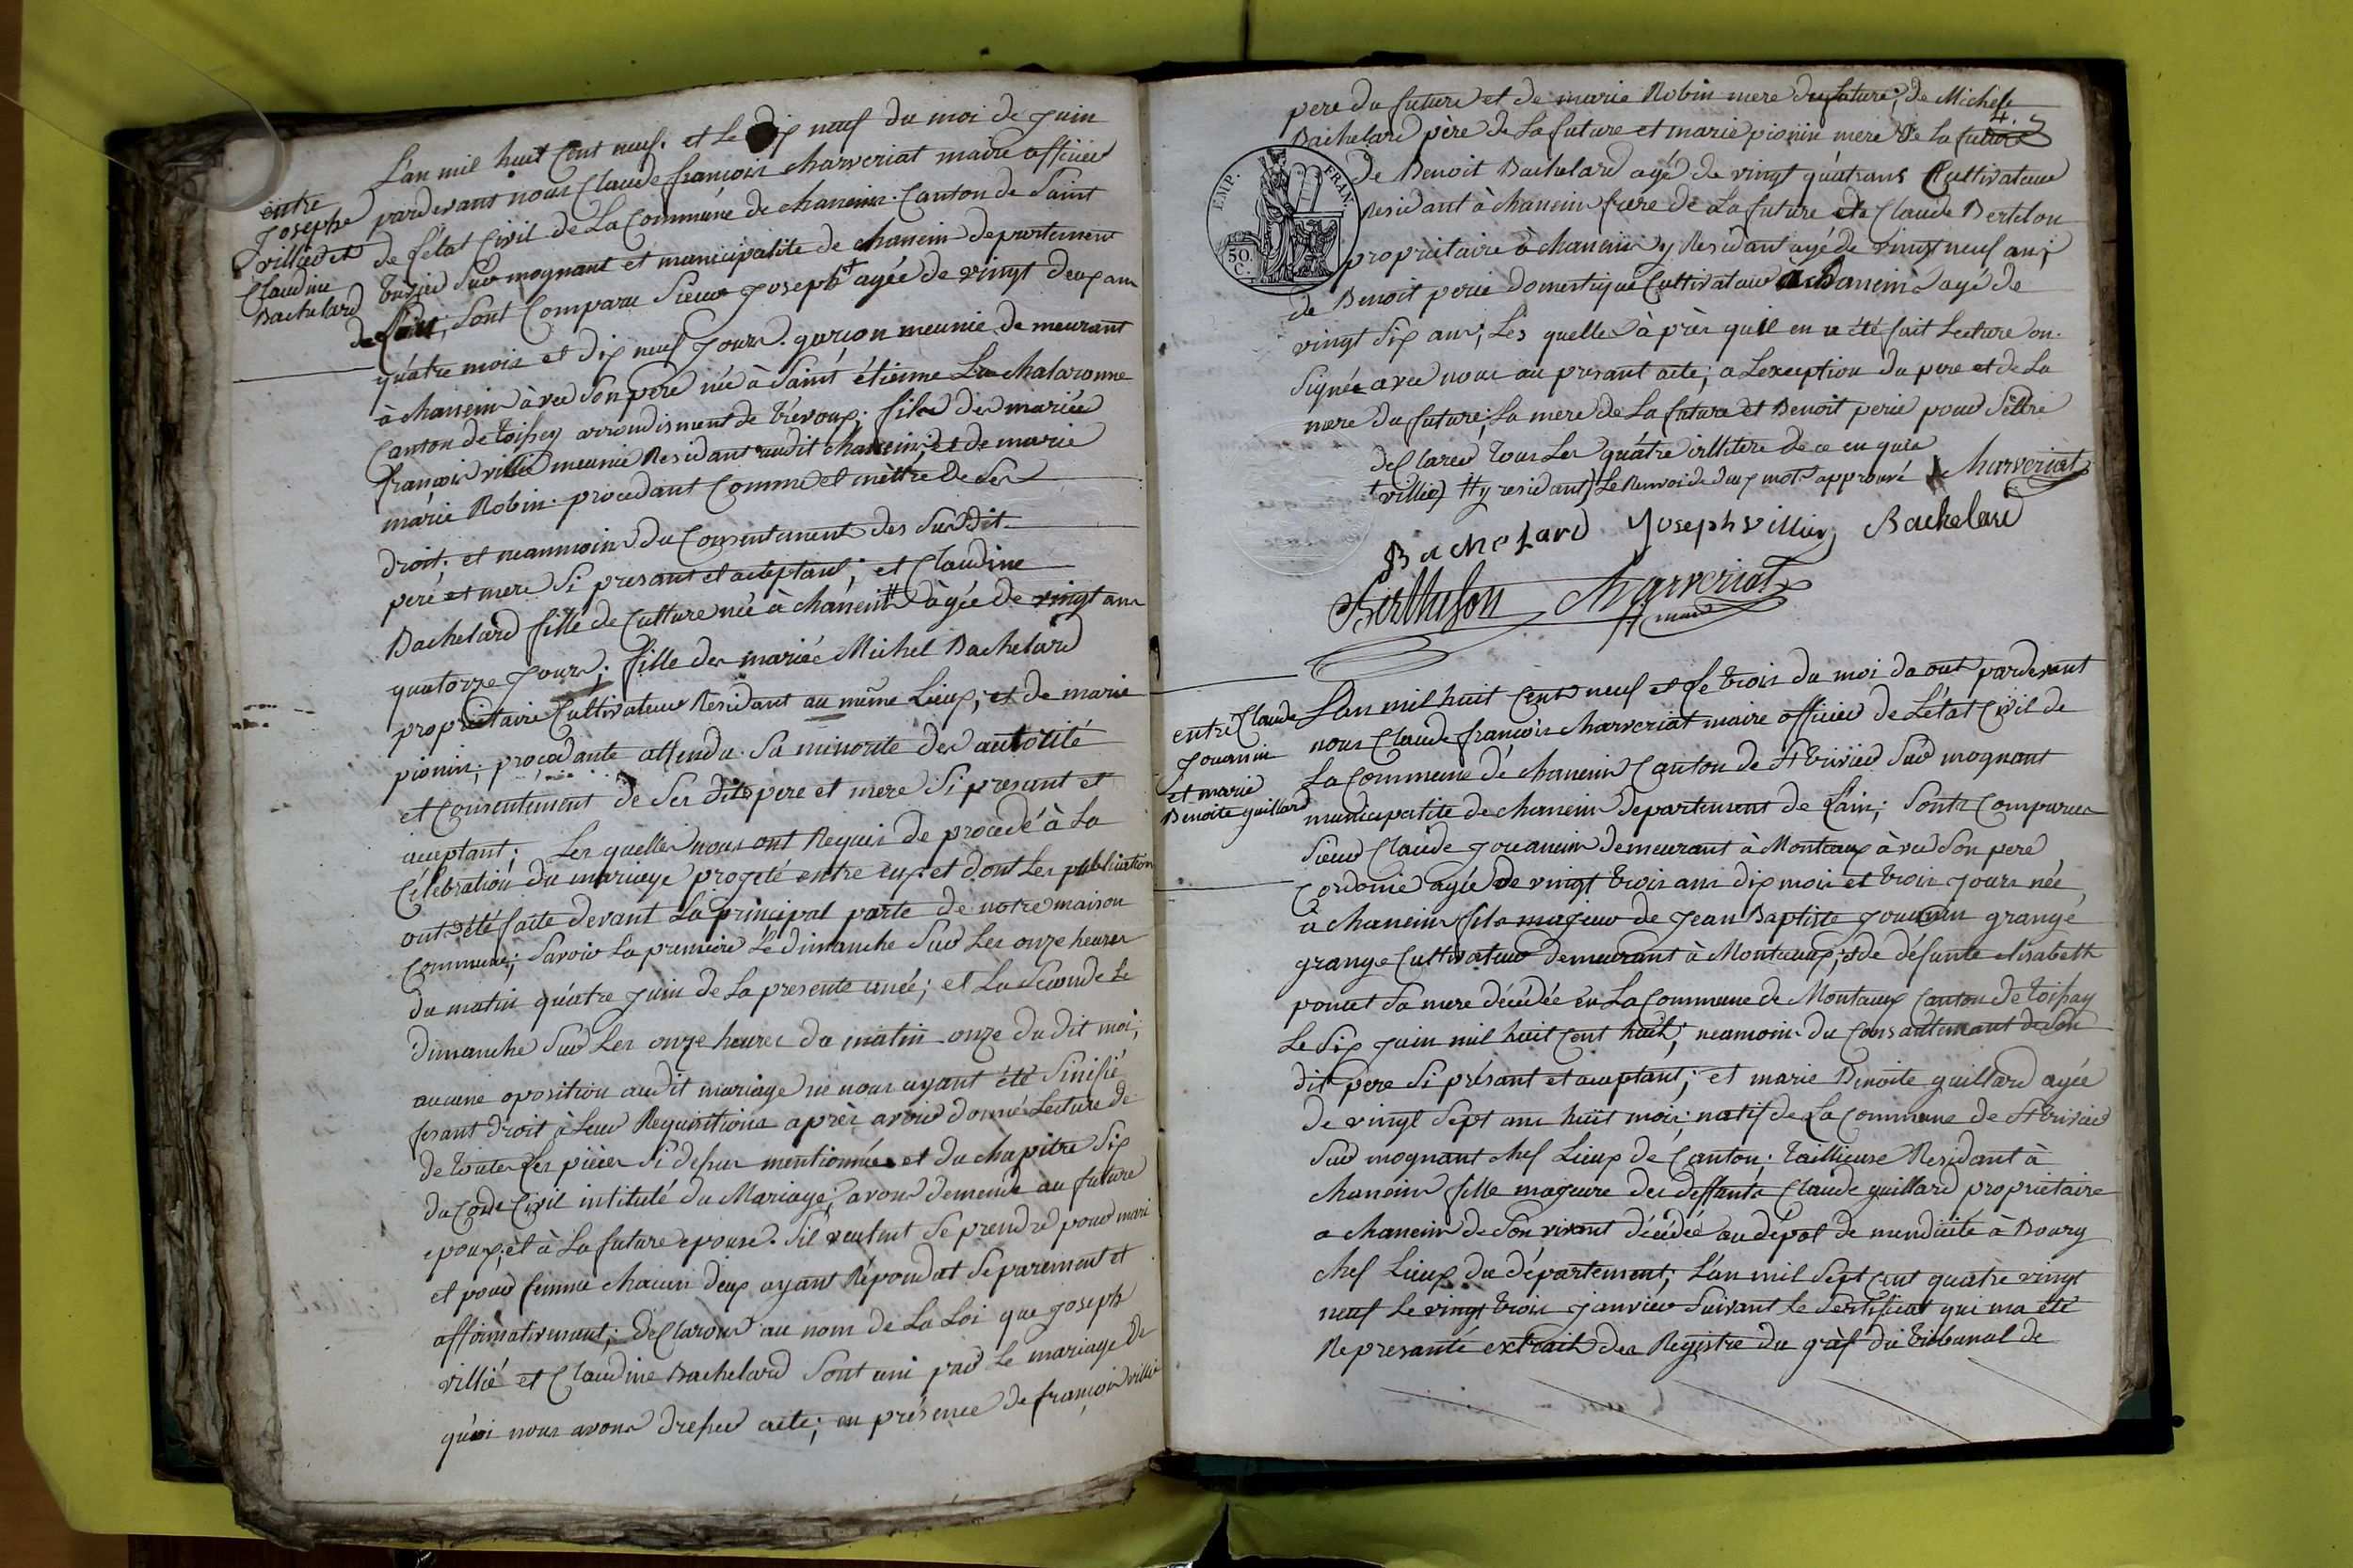 entre
Josephe
villié et
Claudine
Bachelard
L'an mil huit Cent neuf. et Le dix neuf du moi de Juin
pardevant nous Claude françois charveriat maire officier
de l'état Civil de La Commune de chanein. Canton de Saint
trivier Sur mognant et municipalité de chanein departement
de l'ain; Sont Comparu Sieur Joseph + agée de vingt deux ans
quátre mois et dix neuf Jours. garçon meunié demeurant
à chanein àvec Son pere née à Saint étienne La chalaronne
Canton de toissey arrondisment de trévoux. fils des mariée
françois villié meunié Residant audit chanein; et de marie
márie Robin. procedant Comme et mèttre De Ses
droit; et neanmoins du Consentement des Susdit
peré et mere Si presant et aceptant; et Claudine
Bachelard fille de Culture née à chanein # àgée de vingt ans
quatorze Jours; fille des mariée Michel Bachelard
proprietaire Cultivateur Residant au même Lieux; et de marie
pionin; procedante attendu Sa minorité des autorité
et Consentement de Ses dits pere et mere Si present et
aceptant; Les quelles nous ont Requis de procedé à La
Célébration du mariage progeté entre eux et dont Les publication
ont été faite devant La principal porte de notre maison
Commune; Savoir La premiere Le dimanche Sur Les onze heures
du matin quátre Juin de La presente anée; et La Seconde Le
dimanche Sur Les onze heures du matin onze du dit moi;
aucune oposition audit mariage ne nous ayant été Sinifié
fesant droit à Leur Requisitions aprèr avoir donné Lecture de
de toutes Les pièces Si desus mentionnée et du chapitre Six
du Code Civil intitulé du Mariage; avons demendé au future
epoux; et à La future epouse. S'il veulent Se prendre pour mari
et pour femme chacun d'eux ayant Répondat Séparement et
affirmativement; déClarons au nom de La Loi que Joseph
villié et Claudine Bachelard Sont uni par Le mariage De
quoi nous avons dressée acte; en présence de françois villié
4.
pere du future et de marie Robin mere du future; de Michele
Bachelard père de La future et marie pionin mere de La future
de Benoit Bachelard agé de vingt quátrans Cultivateur
Residant à chanein frere de La future de Claude Bertelon
propriétaire à chanein y Residant agé de vingt neuf ans;
de Benoit perié domestique Cultivateur a chanein agé de
vingt Six ans; Les quelles à près quil en a été fait Lecture on
Signée avec nous au presant acte; a Lexception du pere et de La
mere du future; La mere de La future et Benoit perié pour S'éttre
deClareé tous Les quátre illitere de ce enquis
+ villié) # y residant) Le Renvoi de deux mots approuvé Charveriat
Bachelard Joseph villier Bachelard
Berthelon Charveriat
maire
EMP. FRAN.
50.
C.
entre Claude
Jouanin
et marie
Benoite guillard
L'an mil huit Cent neuf et Le trois du moi daout pardevant
nous Claude françois charveriat maire officier de L'état Civil de
La Commune de chanein Canton de St trivier Sur mognant
municipalité de chanein departement de L'ain; Sonts Comparuee
Sieur Claude Jouanin demeurant à Montceaux àvec Son pere
Cordonié agée de vingt trois ans dix mois et trois Jours née
à chanein fils majeur de Jean Baptiste Jouanin grangé
grange Cultivateur demeurant à Montceaux; et de défunte elisabeth
poncet Sa mere décédée en La Commune de Montceaux Canton de toissay
Le Six Juin mil huit Cent huit; neamoins du Consantemant de Son
dit pere Si présant et aceptant; et marie Benoite guillard agée
de vingt Sept ans huit mois; natif de La Commune de St trivier
Sur mognant chef Lieux de Canton; taillieuse Residant à
chanein fille majeure des deffants Claude guillard proprietaire
a chanein de Son vivant décédée au dépot de mendicité à Bourg
chef Lieux du département; L'an mil Sept Cent quatre vingt
neuf Le vingt trois janvier Suivant Le Sertificat qui ma été
Represanté extrait des Registre du gréf du tribunal de